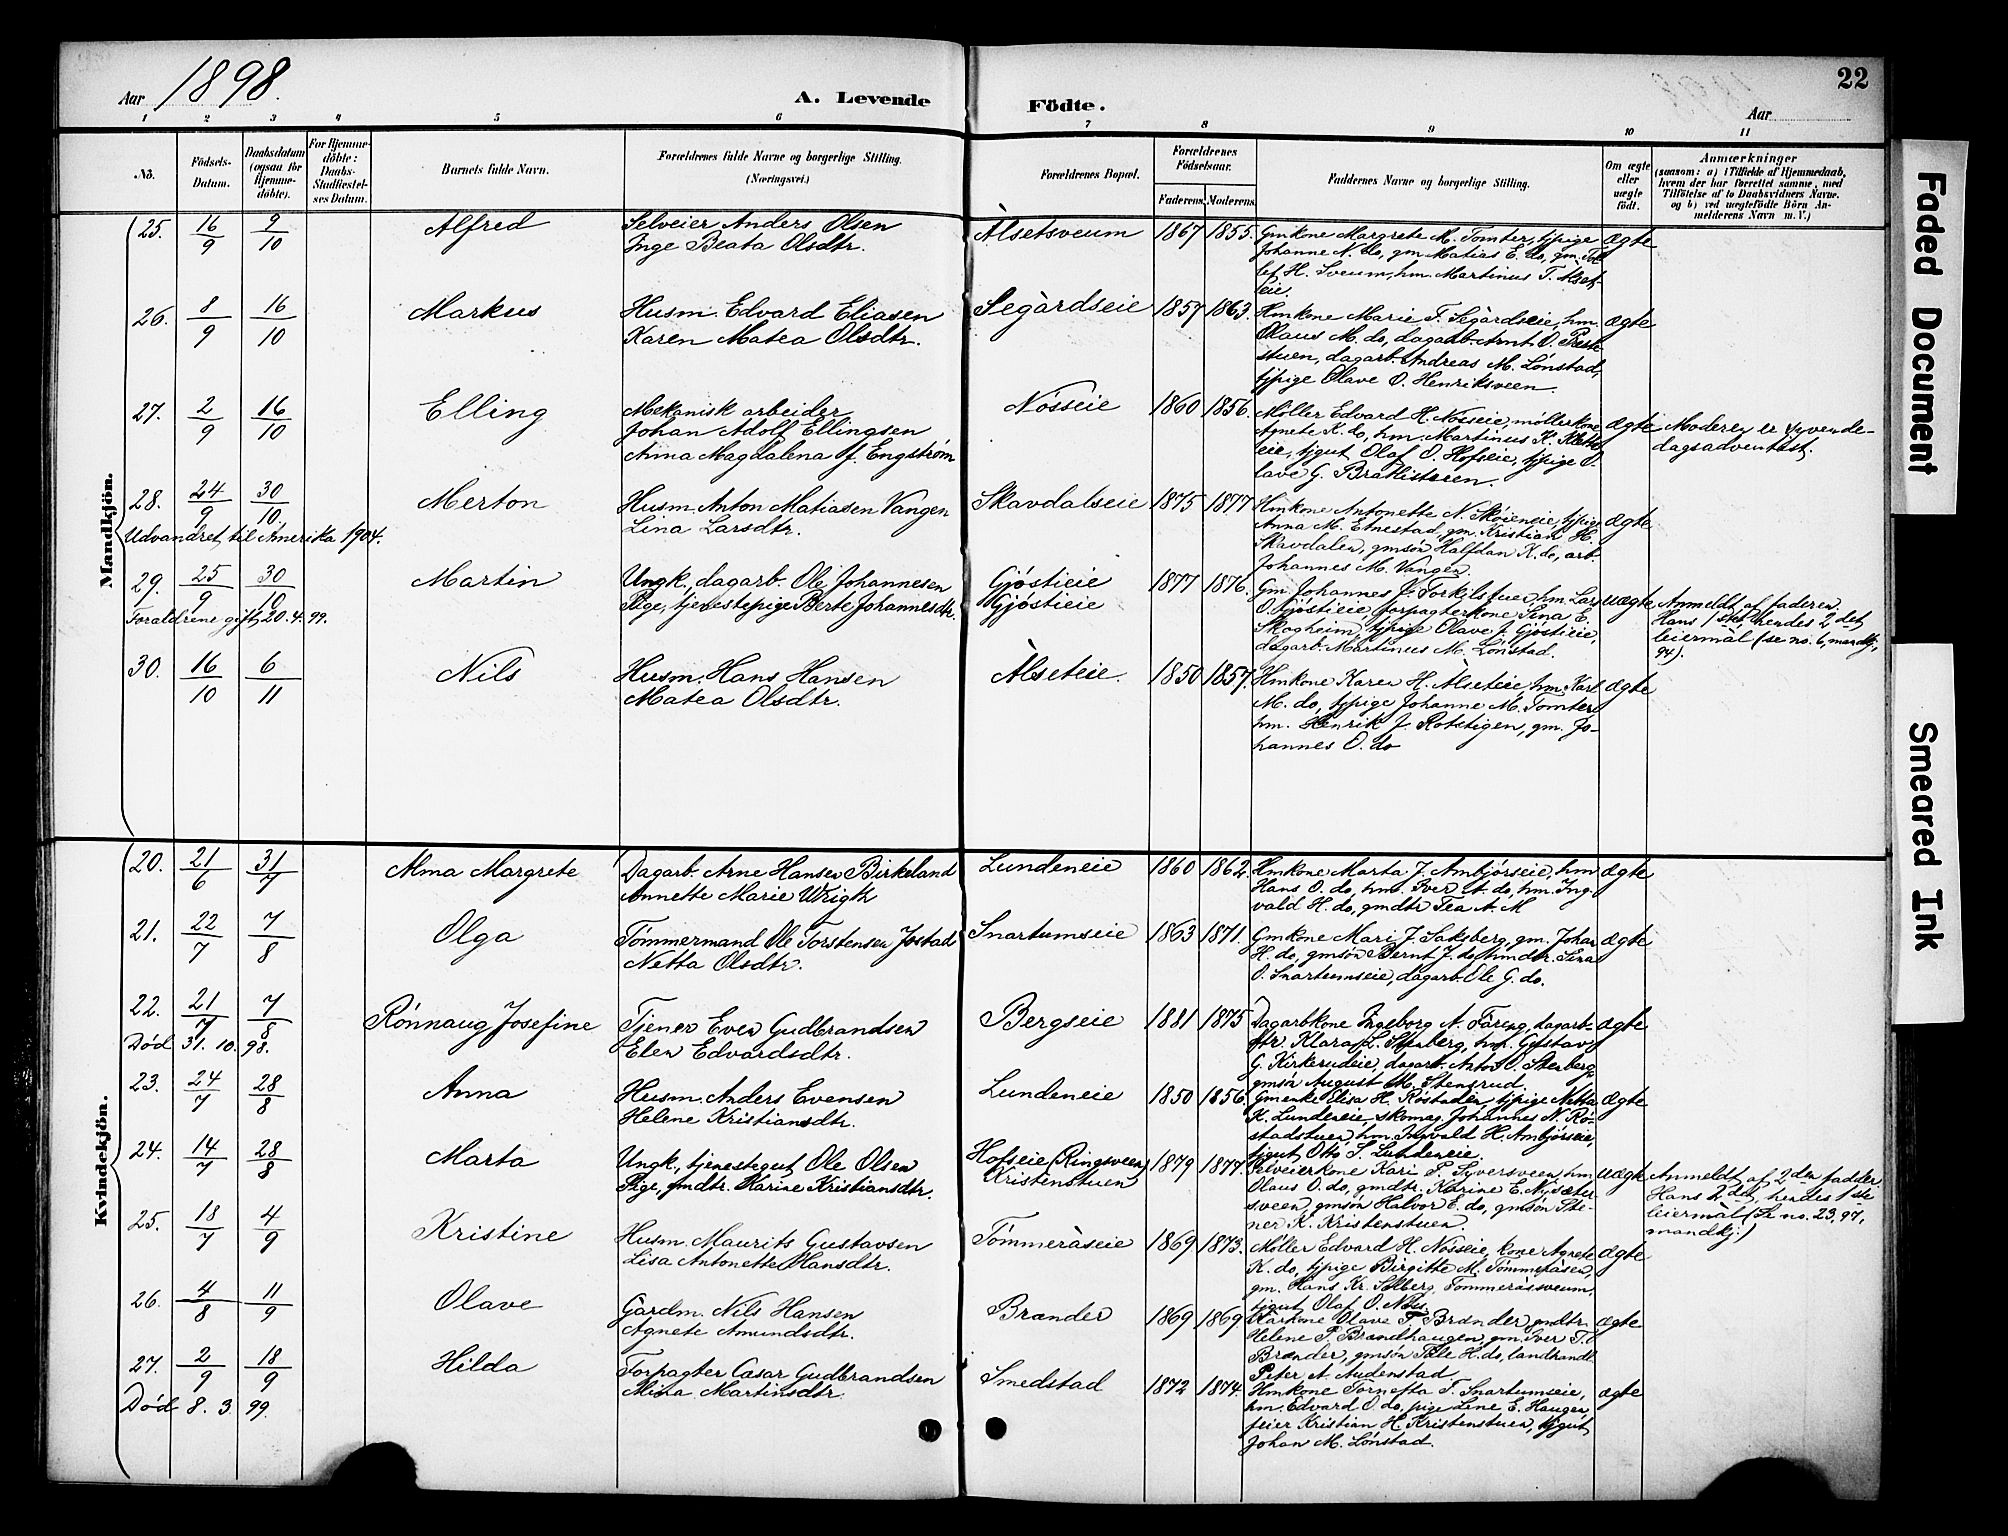 Aar 1898.
A. Levende Födte.
22
Aar
1 2 3 4 5 6 7 8 9 10 11
No.
Födsels-Datum.
Daabsdatum (ogsaa for Hjemmedöbte).
For Hjemmedöbte: Daabs-Stadfæstelses Datum.
Barnets fulde Navn.
Forældrenes fulde Navne og borgerlige Stilling. (Næringsvei.)
Forældrenes Bopæl.
Forældrenes Födselsaar.
Faderens. Moderens.
Faddernes Navne og borgerlige Stilling.
Om ægte eller uægte født.
Anmærkninger
(saasom: a) i Tilfælde af Hjemmedaab, hvem der har forrettet samme, med Tilföielse af to Daabsvidners Navne, og b) ved uægtefödte Börn Anmelderens Navn m. V.)
Mandkjön.
25. 16/9 9/10 Alfred
Selveier Anders Olsen
Inge Beata Olsdtr.
Alsetsveum 1867 1855.
Gmkone Margrete M. Tomter, tjpige
Johanne N. do, gm. Matias E. do, gm. Tol-
lef H. Sveum, hm. Martinus T. Alset-
eie.
ægte
26. 8/9 16/10 Markus
Husm. Edvard Eliasen
Karen Matea Olsdtr.
Segårdseie 1857 1863.
Hmkone Marie F. Segårdseie, hm.
Olaus M. do, dagarb. Arnt O. Præste-
stuen, dagarb. Andreas M. Lønstad,
tjpige Olave O. Henriksveen.
ægte
27. 2/9 16/10 Elling
Mekanisk arbeider
Johan Adolf Ellingsen
Anna Magdalena f. Engstrøm
Nøsseie 1860 1856.
Møller Edvard H. Nøsseie, møllerkone
Agnete K. do, hm. Martinus K. Klette-
eie, tjgut Olaf O. Hofseie, tjpige O-
lave G. Bratlistuen.
ægte
Moderen er syvende-
dagsadventist.
28. 24/9 30/10 Merton
Husm. Anton Matiasen Vangen
Lina Larsdtr.
Skavdalseie 1875 1877
Hmkone Antonette N. Skøieneie, tjpige
Anna M. Etnestad, gm. Kristian H.
Skavdalen, gmsøn Halfdan K. do, arb.
Johannes M. Vangen.
ægte
Udvandret til Amerika 1904.
29. 25/9 30/10 Martin
Ungk., dagarb. Ole Johannesen
Pige, tjenestepige Berte Johannesdtr.
Gjøstieie
Gjøstieie
1877 1876.
Gm. Johannes J. Torkilstuen, hm. Lars
O. Gjøstieie, forpagterkone Sina E.
Skogheim, tjpige Olave J. Gjøstieie,
dagarb. Martinus M. Lønstad.
uægte
Anmeldt af faderen.
Hans 1ste, hendes 2det
leiermål (se no. 6, mandkj.,
94).
Forældrene gift 20.4.99.
30. 16/10 6/11 Nils
Husm. Hans Hansen
Matea Olsdtr.
Alseteie. 1850 1857.
Hmkone Karen H. Alseteie, hm. Karl
M. do, tjpige Johanne M. Tomter
hm. Henrik J. Rotstigen, gm. Jo-
hannes O. do
ægte
Kvindekjön.
20. 21/6 31/7 Alma Margrete
Dagarb. Arne Hansen Birkeland
Annette Marie Wrigth
Lundeneie 1860 1862.
Hmkone Marta J. Ambjørseie, hm
Hans O. do, hm. Iver A. do, hm. Ing-
vald H. do, gmdtr Tea A. M
ægte
21. 22/7 7/8 Olga
Tømmermand Ole Torstensen Jostad
Netta Olsdtr.
Snartumseie 1863 1871.
Gmkone Mari J. Saksberg, gm. Johan
H. do, gmsøn Bernt J. do, hmdtr. Lina
O. Snartumseie, dagarb. Ole G. do.
ægte
22. 21/7 7/8 Rønnaug Josefine
Tjener Even Gudbrandsen
Elen Edvardsdtr.
Bergseie 1881 1875
Dagarbkone Ingeborg A. Færeng, dagarb-
dtr. Klara L. Stenberg, hm. Gustav
G. Kirkerudeie, dagarb. Anton O. Stenberg
gmsøn August M. Stensrud.
ægte
Død 31. 10. 98.
23. 24/7 28/8 Anna
Husm. Anders Evensen
Helene Kristiansdtr.
Lundeneie 1850 1856.
Gmenke Elisa H. Røstaden, tjpige Netta
K. Lundeneie, skomag. Johannes N. Rø-
stadstuen, hm. Ingvald H. Ambjørseie,
tjgut Otto S. Lundeneie.
ægte
24. 14/7 28/8 Marta
Ungk., tjenestegut Ole Olsen
Pige, gmdtr. Karine Kristiansdtr.
Hofseie (Ringsveen)
Kristenstuen
1879 1877.
Selveierkone Kari P. Syversveen, hm
Olaus O. do, gmdtr. Karine E. Nysæter-
sveen, gmsøn Halvor E. do, gmsøn Ste-
ner K. Kristenstuen.
uægte
Anmeldt af 2den fadder.
Hans 2det, hendes 1ste
leiermål (Se no. 23, 97,
mandkj.)
25. 18/7 4/9 Kristine
Husm. Maurits Gustavsen
Lisa Antonette Hansdtr.
Tømmeråseie 1869 1873.
Møller Edvard H. Nøsseie, kone Agnete
K. do, tjpige Birgitte M. Tømmeråsen,
gm. Hans Kr. Solberg, Tømmeråssveum,
tjgut Olaf O. Nøss.
ægte
26. 4/8 11/9 Olave
Gårdm. Nils Hansen
Agnete Amundsdtr.
Brænder 1869 1869
Kårkone Olave T. Brænder, gmdtr.
Helene P. Brændhaugen, gm. Iver T.
Brænder, gmsøn Påle H. do, landhandl.
Peter A. Audenstad.
ægte
27. 2/9 18/9 Hilda
Forpagter Cæsar Gudbrandsen
Mina Martinsdtr.
Smedstad 1872 1874.
Hmkone Tornefta T. Snartumseie,
hm. Edvard O. do, pige Lene E. Haugen
feier Kristian H. Kristenstuen, tjgut
Johan M. Lønstad.
ægte
Død 8. 3. 99.
Faded Document
Smeared Ink